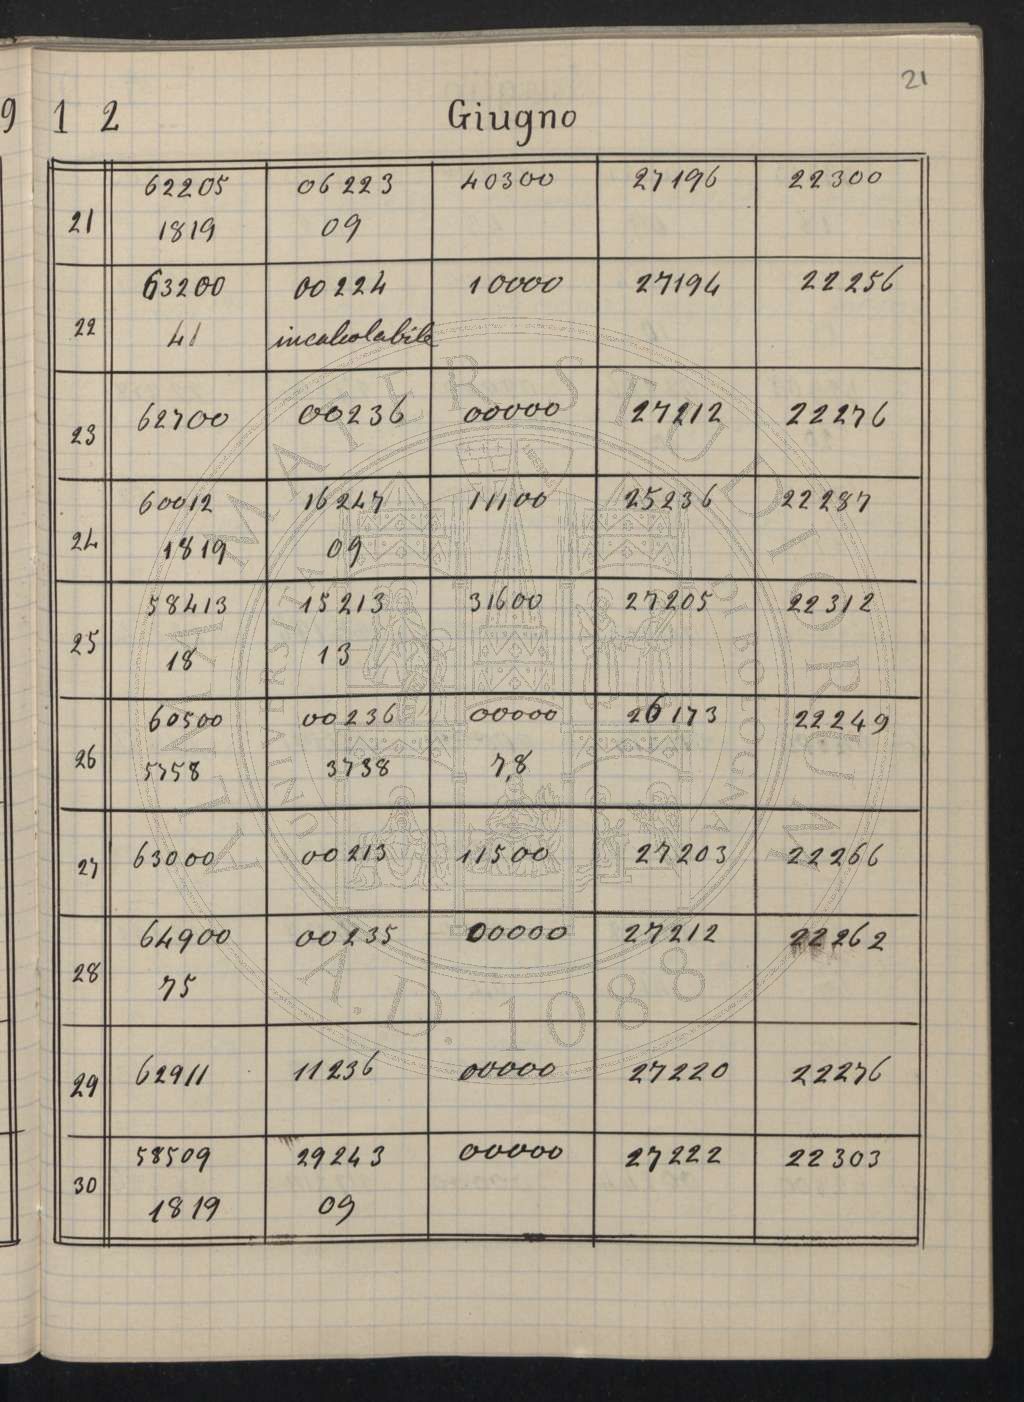 21
9 1 2 Giugno
21 62205 06223 40300 27196 22300
1819 09
22 63200 00224 10000 27194 22256
41 incalcolabile
23 62700 00236 00000 27212 22276
24 60012 16247 11100 25236 22287
1819 09
25 58413 15213 31600 27205 22312
18 13
26 60500 00236 00000 26173 22249
5758 3738 7,8
27 63000 00213 11500 27203 22266
28 64900 00235 00000 27212 22262
75
29 62911 11236 00000 27220 22276
30 58509 29243 00000 27222 22303
1819 09
ALMA MATER STUDIORUM
UNIVERSITÀ DI BOLOGNA
A.D. 1088